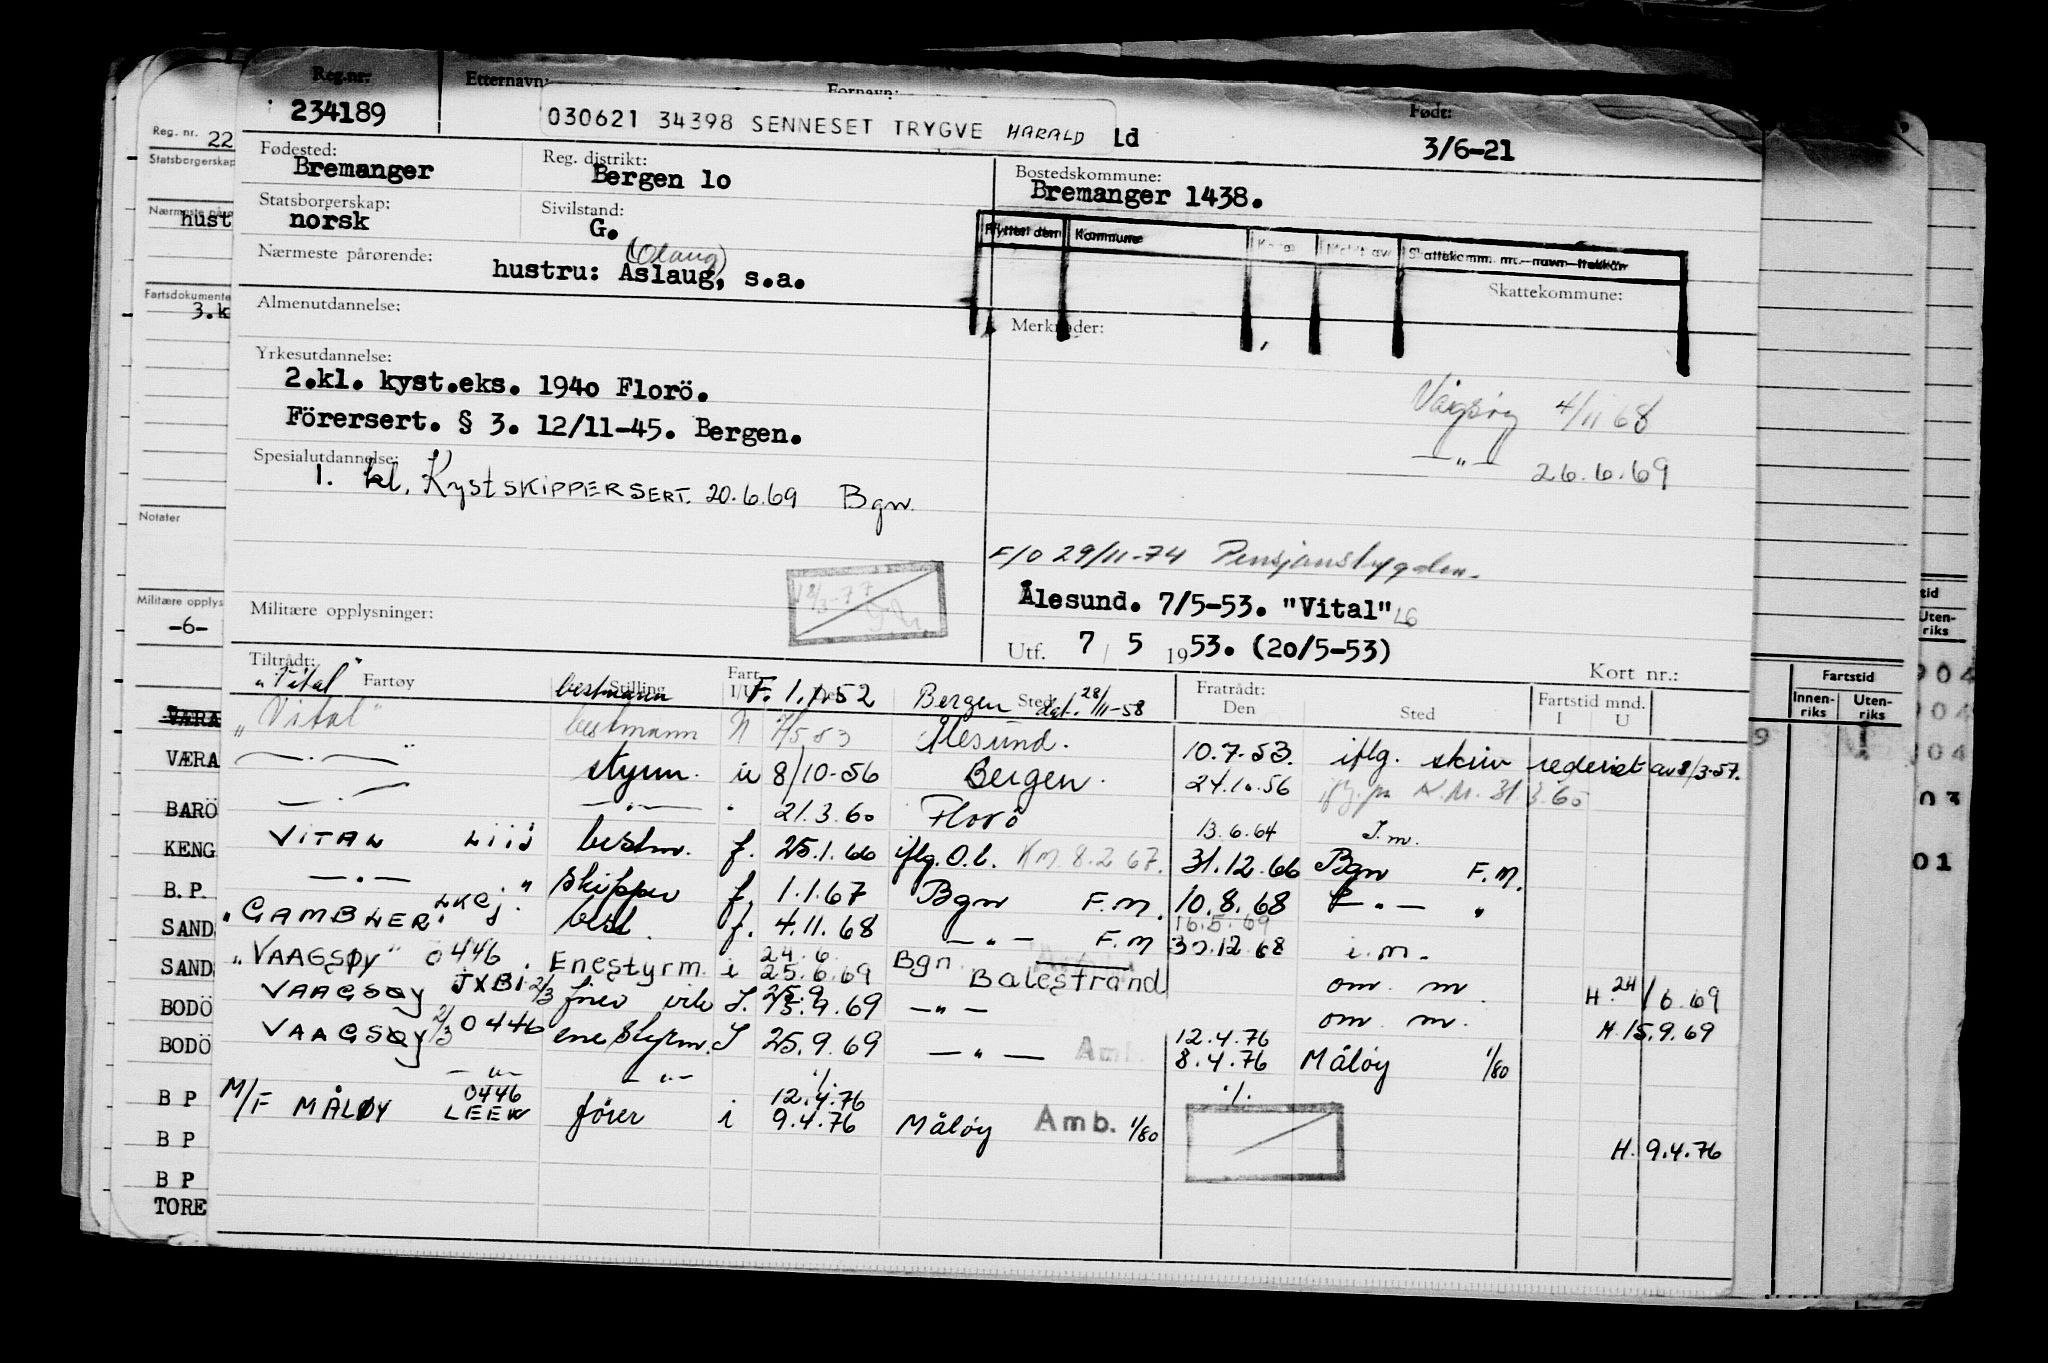 Reg.nr.
Etternavn:
Fornavn:
Født:
234189
030621 34398 SENNESET TRYGVE HARALD Ld
3/6-21
Fødested:
Bremanger
Reg. distrikt:
Bergen 1o
Bostedskommune:
Bremanger 1438.
Statsborgerskap:
norsk
Sivilstand:
G.
Flyttet den Kommune Meldt av Skattekomm. nr.-navn-trekkår
Skattekommune:
Nærmeste pårørende:
(Olaug)
hustru: Aslaug, s.a.
Almenutdannelse:
Merknader:
Yrkesutdannelse:
2.kl. kyst.eks. 194o Florö.
Förersert. § 3. 12/11-45. Bergen.
Vågsøy 4/11 68
—"— 26.6.69
Spesialutdannelse:
1. kl. Kystskippersert. 20.6.69 Bgn.
F/O 29/11-74 Pensjonstrygden.
Ålesund. 7/5-53. "Vital" LG
Utf. 7 / 5 1953. (20/5-53)
Militære opplysninger:
Kort nr.:
Tiltrådt:
Fartøy
Stilling
Fart I/U
Sted
Fratrådt:
Den
Sted
Fartstid mnd.
I U
"Vital" bestmann F. 1.1.52 Bergen dgl. 28/11-58
"Vital" bestmann N 7/5 53 Ålesund. 10.7.53. iflg. skriv rederiet av 8/3-57.
—.— " styrm. u 8/10-56 Bergen. 24.10.56
—"— —"— " 21.3.60 Florö 13.6.64 I.m.
VITAL LIIJ bestm. f. 25.1.66 iflg. O.b. KM. 8.2.67. 31.12.66 Bgn F.M.
—.— " skipper f. 1.1.67 Bgn F.M. 10.8.68 —"— "
16.5.69
"GAMBLER" LKCJ. best. f. 4.11.68 —"— F.M 30.12.68 i.m.
24.6
"VAAGSØY" 0446. Enestyrm. i 25.6.69 Bgn. Balestrand om. m. H. 24/6.69
VAAGSØY JXBI 2/3 fører vik I. 15.9.69 —"— om. m. H. 15.9.69
VAAGSØY 2/3 0446 ene styrm. I 25.9.69 —"— Amb.
12.4.76
8.4.76 Måløy 1/80
—"— —"— ./.
0446 12.4.76 ./.
M/F MÅLØY LEEW fører i 9.4.76 Måløy Amb. 1/80 H. 9.4.76
Reg. nr. 22
Statsborgerskap
Nærmeste på
hust
Fartsdokumente
3.k
Notater
Militære opplys
-6-
VÆRA
VÆRA
BARÖ
KENG
B.P.
SAND
SAND
BODÖ
BODÖ
B P
B P
B P
TORE
tid
Uten-
riks
Fartstid
Innen-
riks
Uten-
riks
904
904
04
03
01
9